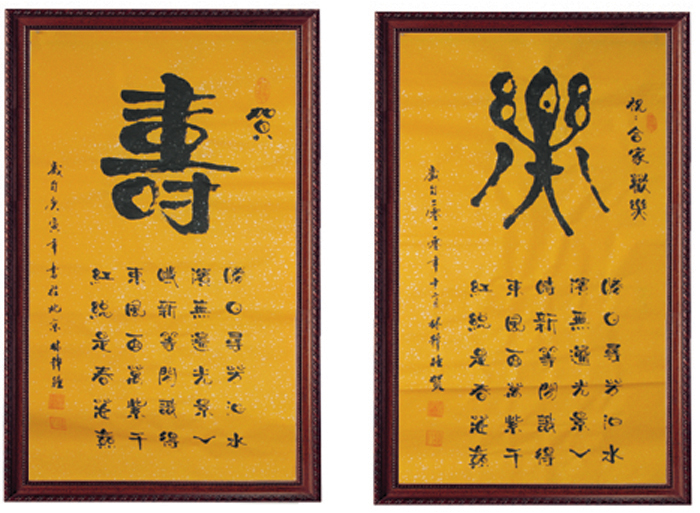 賀
壽
勝日尋芳泗水
濱無邊光景一
時新等閑識得
東風面萬紫千
紅總是春
庚寅年書於北京
祝：合家歡樂
樂
勝日尋芳泗水
濱無邊光景一
時新等閑識得
東風面萬紫千
紅總是春
二零一零年十二月 賀